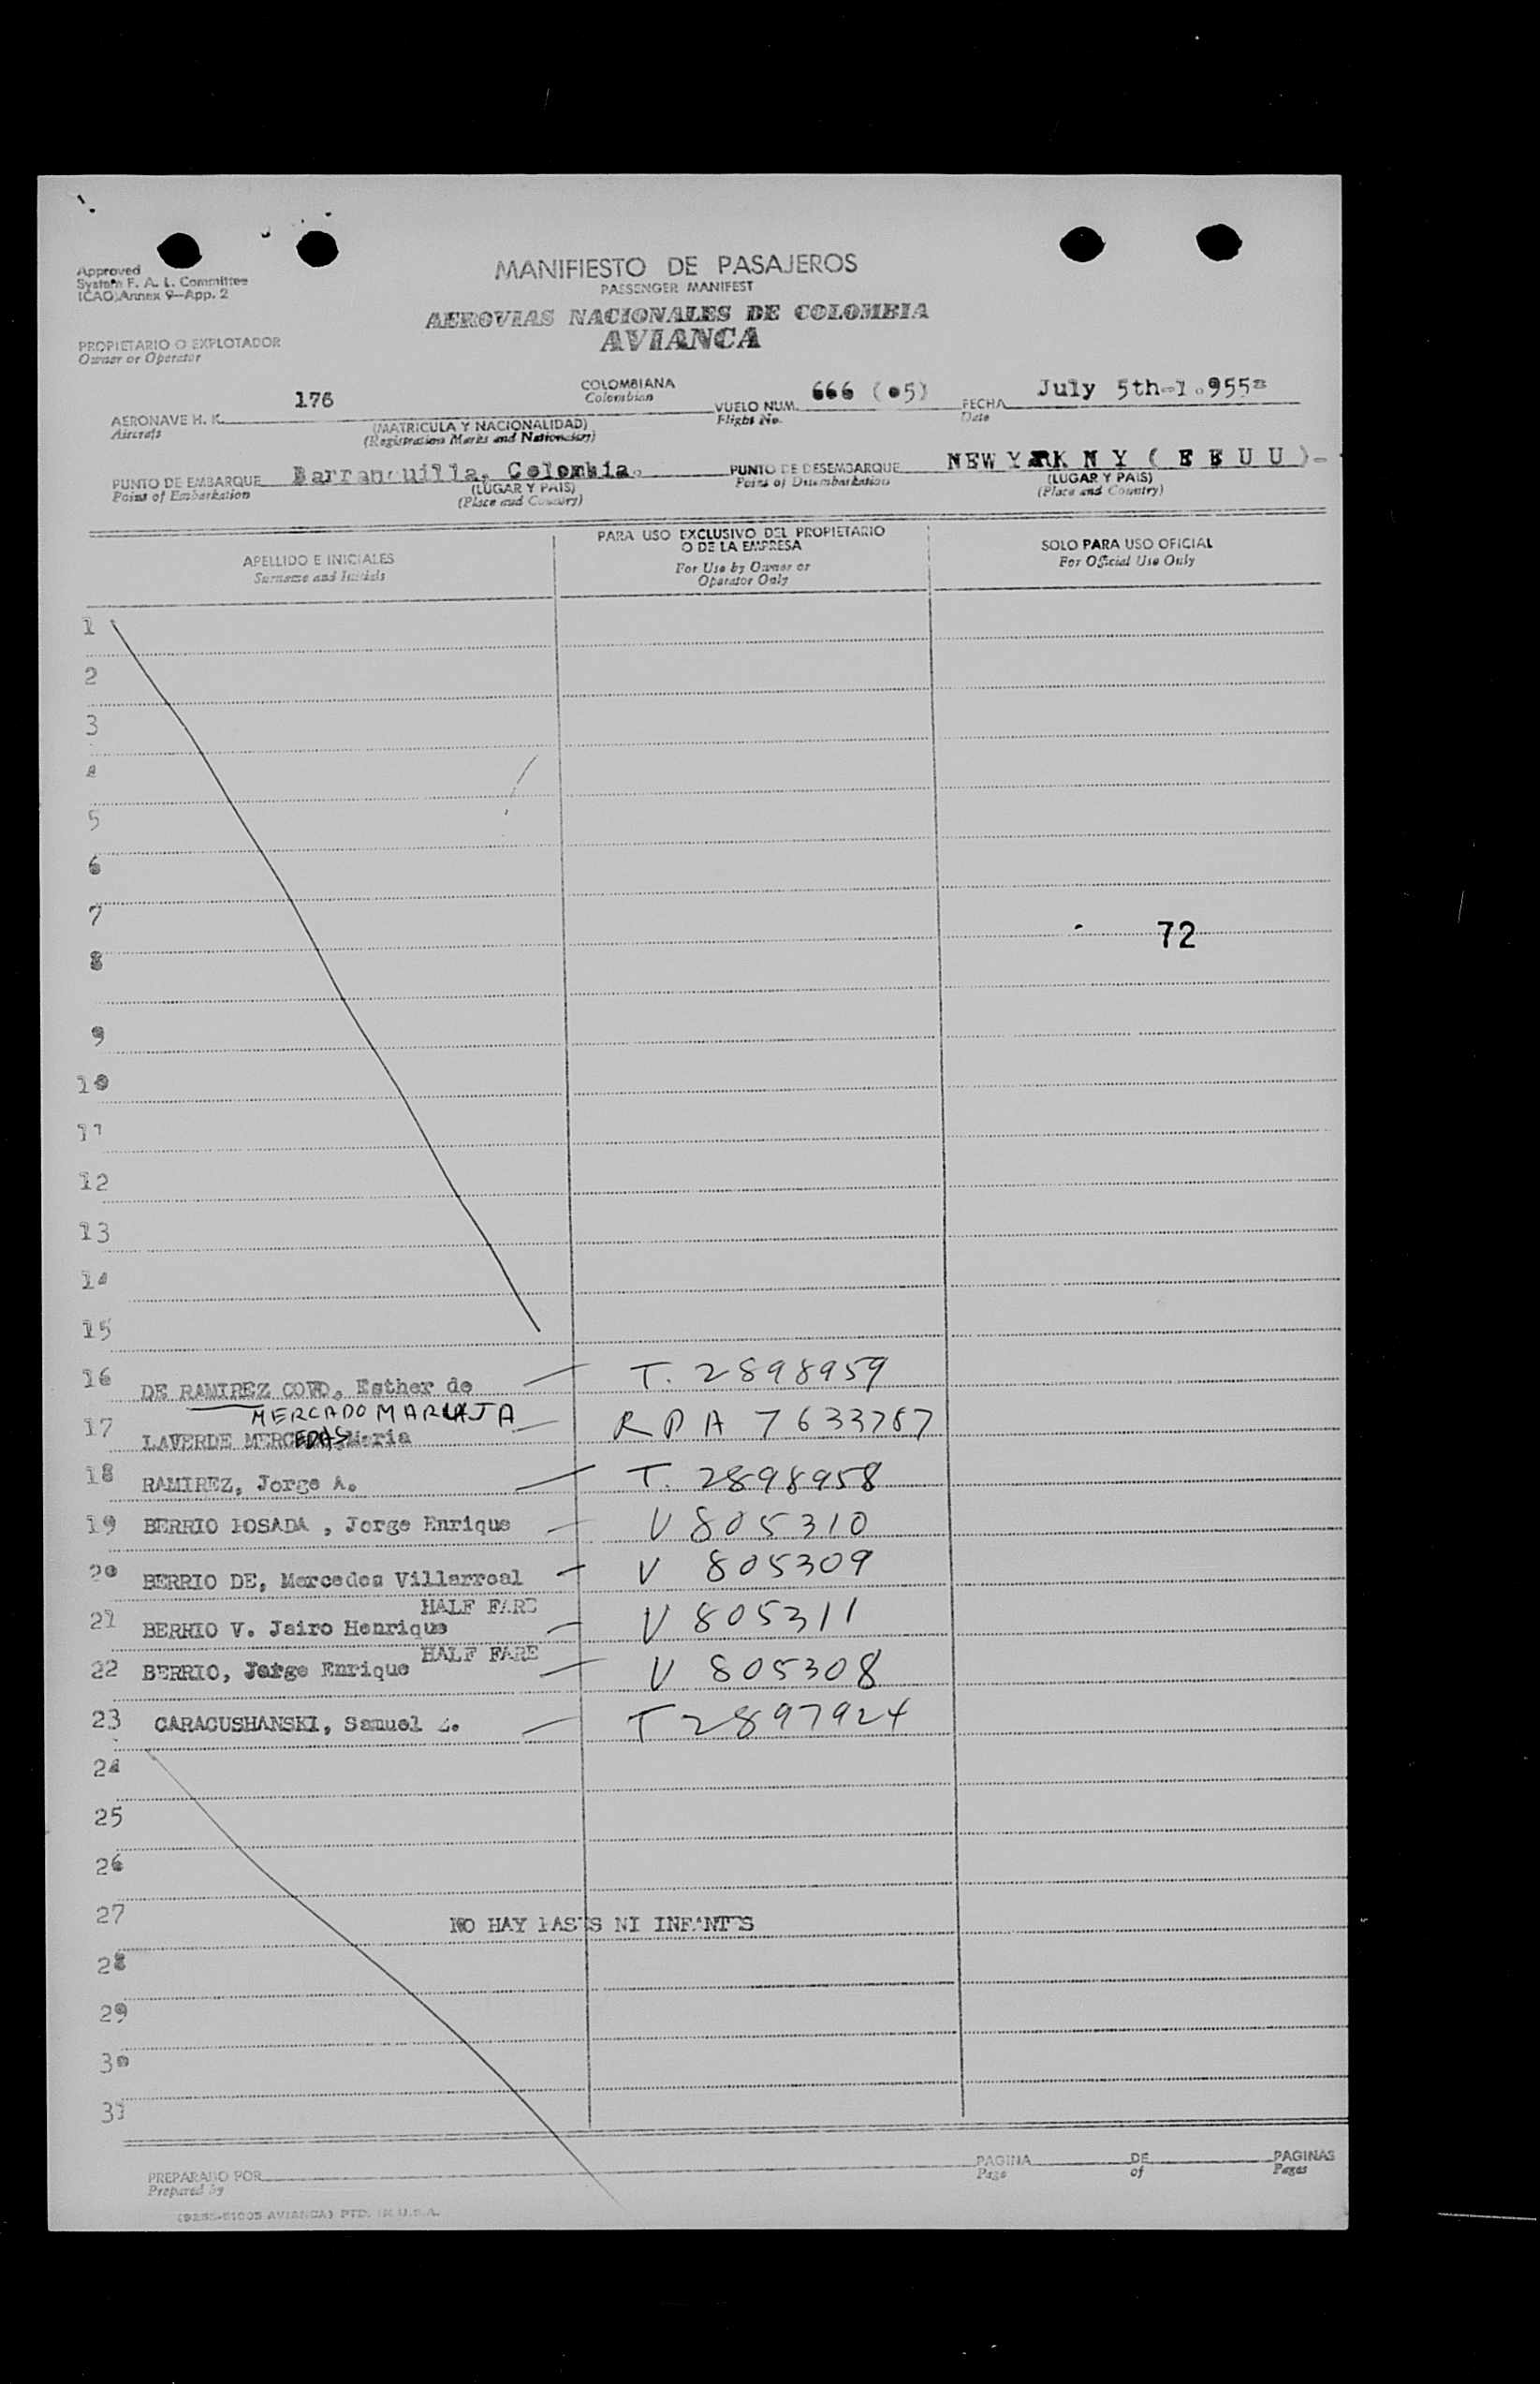 Approved
System F. A. L. Committee
(CAO)Annex 9—App. 2
MANIFIESTO DE PASAJEROS
PASSENGER MANIFEST
AEROVIAS NACIONALES DE COLOMBIA
AVIANCA
PROPIETARIO O EXPLOTADOR
Owner or Operator
AERONAVE H. K. 176 COLOMBIANA VUELO NUM. 666 (05) FECHA July 5th-1.955=
Aircraft Colombian Flight No. Date
(MATRICULA Y NACIONALIDAD)
(Registration Marks and Nationality)
PUNTO DE EMBARQUE Barranquilla, Colombia. PUNTO DE DESEMBARQUE NEW YORK N Y ( E E U U )-
Point of Embarkation (LUGAR Y PAIS) Point of Disembarkation (LUGAR Y PAIS)
(Place and Country) (Place and Country)
APELLIDO E INICIALES PARA USO EXCLUSIVO DEL PROPIETARIO O DE LA EMPRESA SOLO PARA USO OFICIAL
Surname and Initials For Use by Owner or Operator Only For Official Use Only
1
2
3
4
5
6
7
72
8
9
10
11
12
13
14
15
16 DE RAMIREZ COVO, Esther de T. 2898959
MERCADO MARUJA
17 LAVERDE Maria R P A 7633787
18 RAMIREZ, Jorge A. T. 2898958
19 BERRIO POSADA , Jorge Enrique V 805310
20 BERRIO DE, Mercedes Villarreal V 805309
HALF FARE
21 BERRIO V. Jairo Henrique V 805311
HALF FARE
22 BERRIO, Jorge Enrique V 805308
23 CARACUSHANSKI, Samuel T 2897924
24
25
26
27 NO HAY PASES NI INFANTES
28
29
30
31
PREPARADO POR PAGINA DE PAGINAS
Prepared by Page of Pages
AVIANCA) PTD. IN U.S.A.